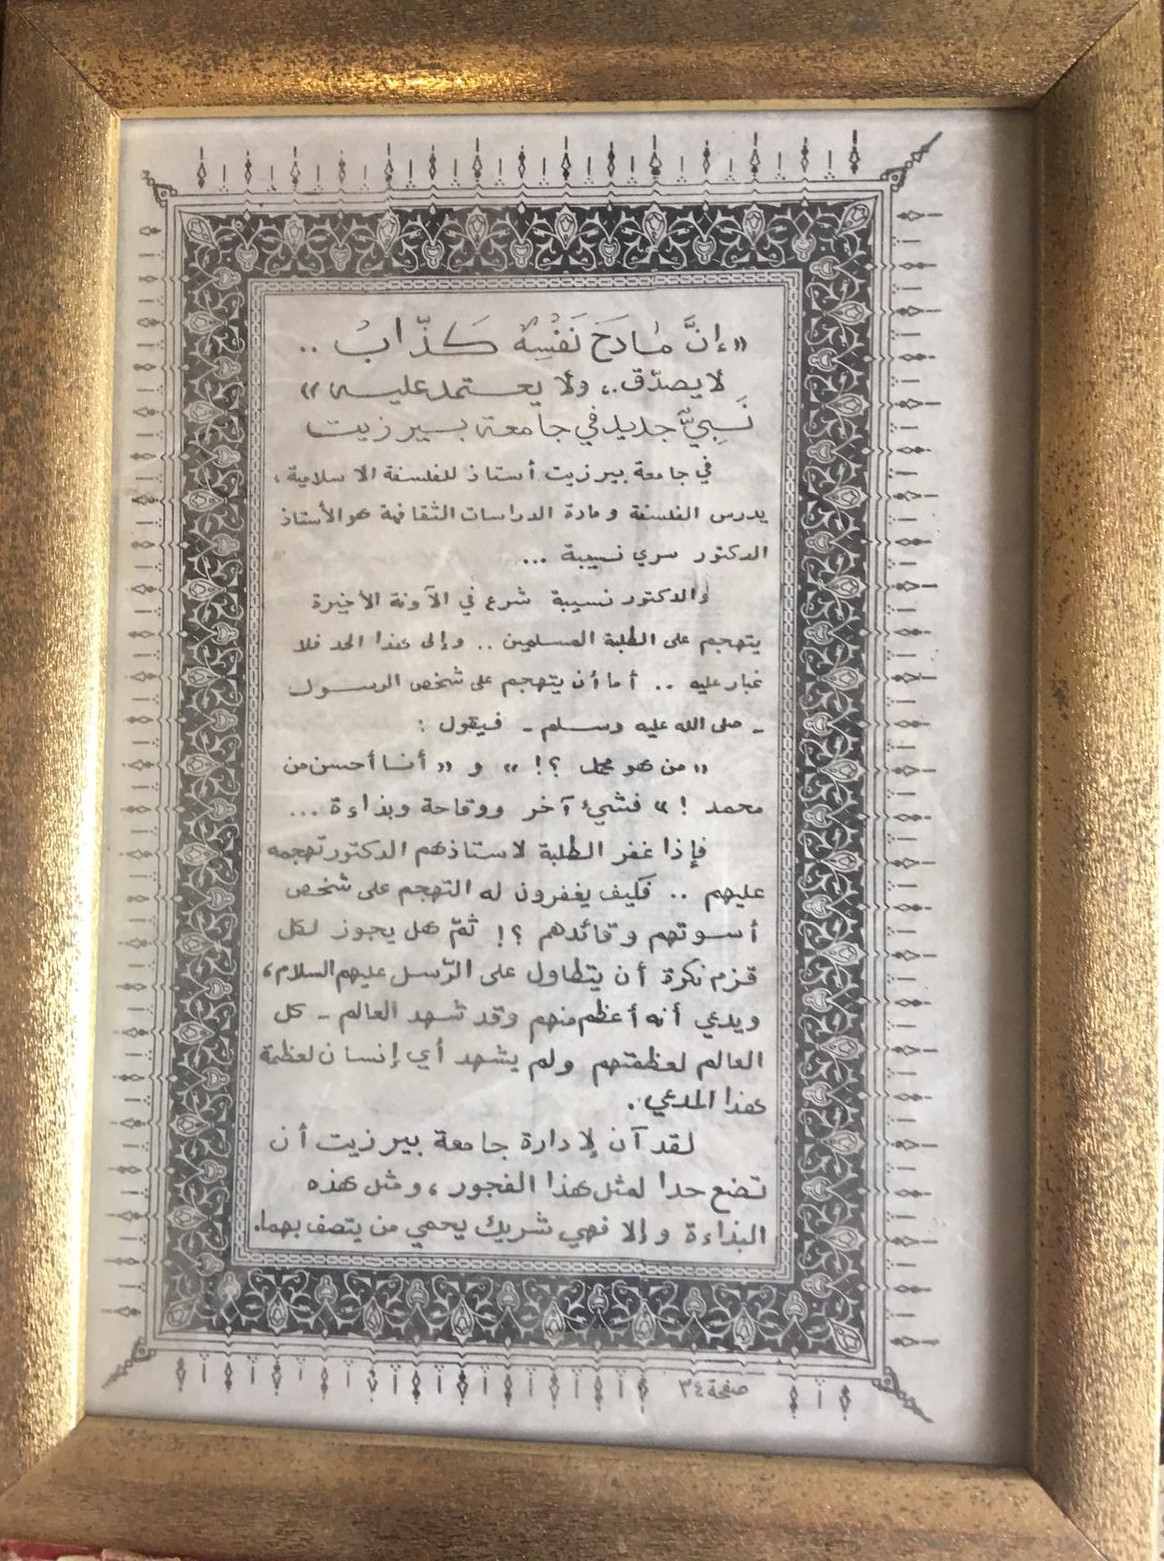 «إنَّ مَادَحَ نَفْسِهُ كَذّابُ ..
لا يصدّق .. ولا يعتمد عليه»
نَبِيٌّ جديد في جامعة بيرزيت
في جامعة بيرزيت أستاذ للفلسفة الاسلامية ،
يدرس الفلسفة ومادة الدراسات الثقافية هو الأستاذ
الدكتور سري نسيبة ...
والدكتور نسيبة شرع في الآونة الأخيرة
يتهجم على الطلبة المسلمين .. وإلى هذا الحد فلا
غبار عليه .. أما أن يتهجم على شخص الرسول
- صلى الله عليه وسلم - فيقول :
«من هو محمد ؟!» و «أنا أحسن من
محمد !» فشيئ آخر ووقاحة وبذاءة ...
فإذا غفر الطلبة لاستاذهم الدكتور تهجمه
عليهم .. فكيف يغفرون له التهجم على شخص
أسوتهم وقائدهم ؟! ثمّ هل يجوز لكل
قزم نكرة أن يتطاول على الرّسل عليهم السلام ،
ويدعي أنه أعظم منهم وقد شهد العالم - كل
العالم لعظمتهم ولم يشهد أي إنسان لعظمة
هذا المدعي .
لقد آن لإدارة جامعة بيرزيت أن
تضع حدا لمثل هذا الفجور ، ومثل هذه
البذاءة وإلا فهي شريك يحمي من يتصف بهما.
صفحة ٣٤